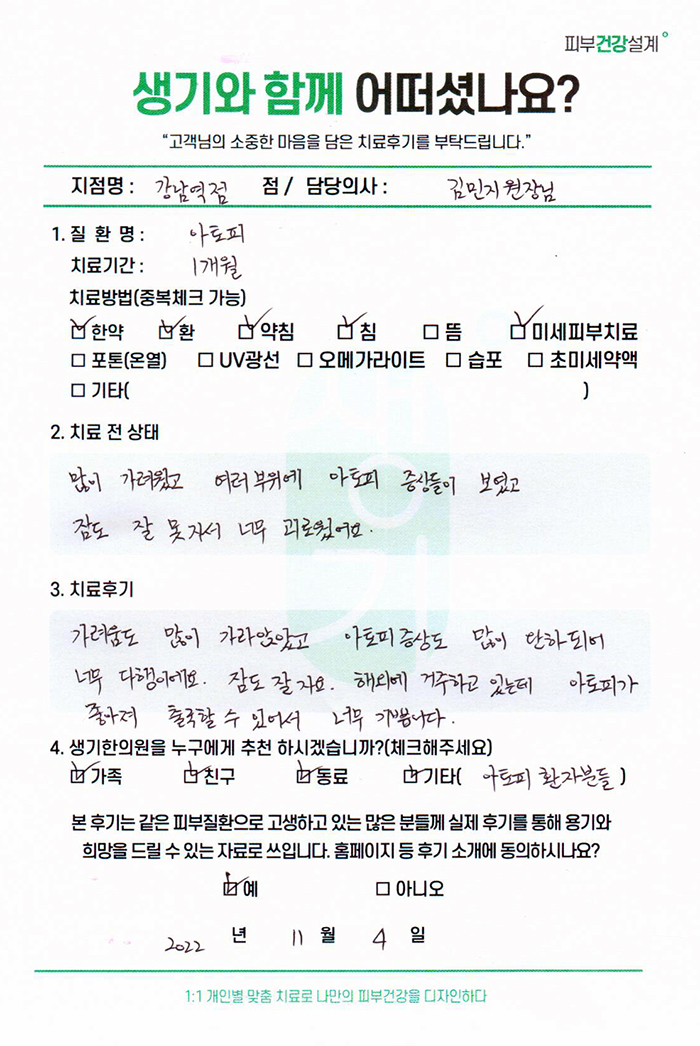 피부건강설계
생기와 함께 어떠셨나요?
“고객님의 소중한 마음을 담은 치료후기를 부탁드립니다.”
지점명 : 강남역점 점 / 담당의사 : 김민지 원장님
1. 질 환 명 : 아토피
치료기간 : 1개월
치료방법(중복체크 가능)
☑ 한약 ☑ 환 ☑ 약침 ☑ 침 ☐ 뜸 ☑ 미세피부치료
☐ 포톤(온열) ☐ UV광선 ☐ 오메가라이트 ☐ 습포 ☐ 초미세약액
☐ 기타( )
2. 치료 전 상태
많이 가려웠고 여러 부위에 아토피 증상들이 보였고
잠도 잘 못자서 너무 괴로웠어요.
3. 치료후기
가려움도 많이 가라앉았고 아토피 증상도 많이 완하되어
너무 다행이에요. 잠도 잘 자요. 해외에 거주하고 있는데 아토피가
좋아져 출국할 수 있어서 너무 기쁩니다.
4. 생기한의원을 누구에게 추천 하시겠습니까?(체크해주세요)
☑ 가족 ☑ 친구 ☑ 동료 ☑ 기타( 아토피 환자분들 )
본 후기는 같은 피부질환으로 고생하고 있는 많은 분들께 실제 후기를 통해 용기와
희망을 드릴 수 있는 자료로 쓰입니다. 홈페이지 등 후기 소개에 동의하시나요?
☑ 예 ☐ 아니오
2022 년 11 월 4 일
1:1 개인별 맞춤 치료로 나만의 피부건강을 디자인하다